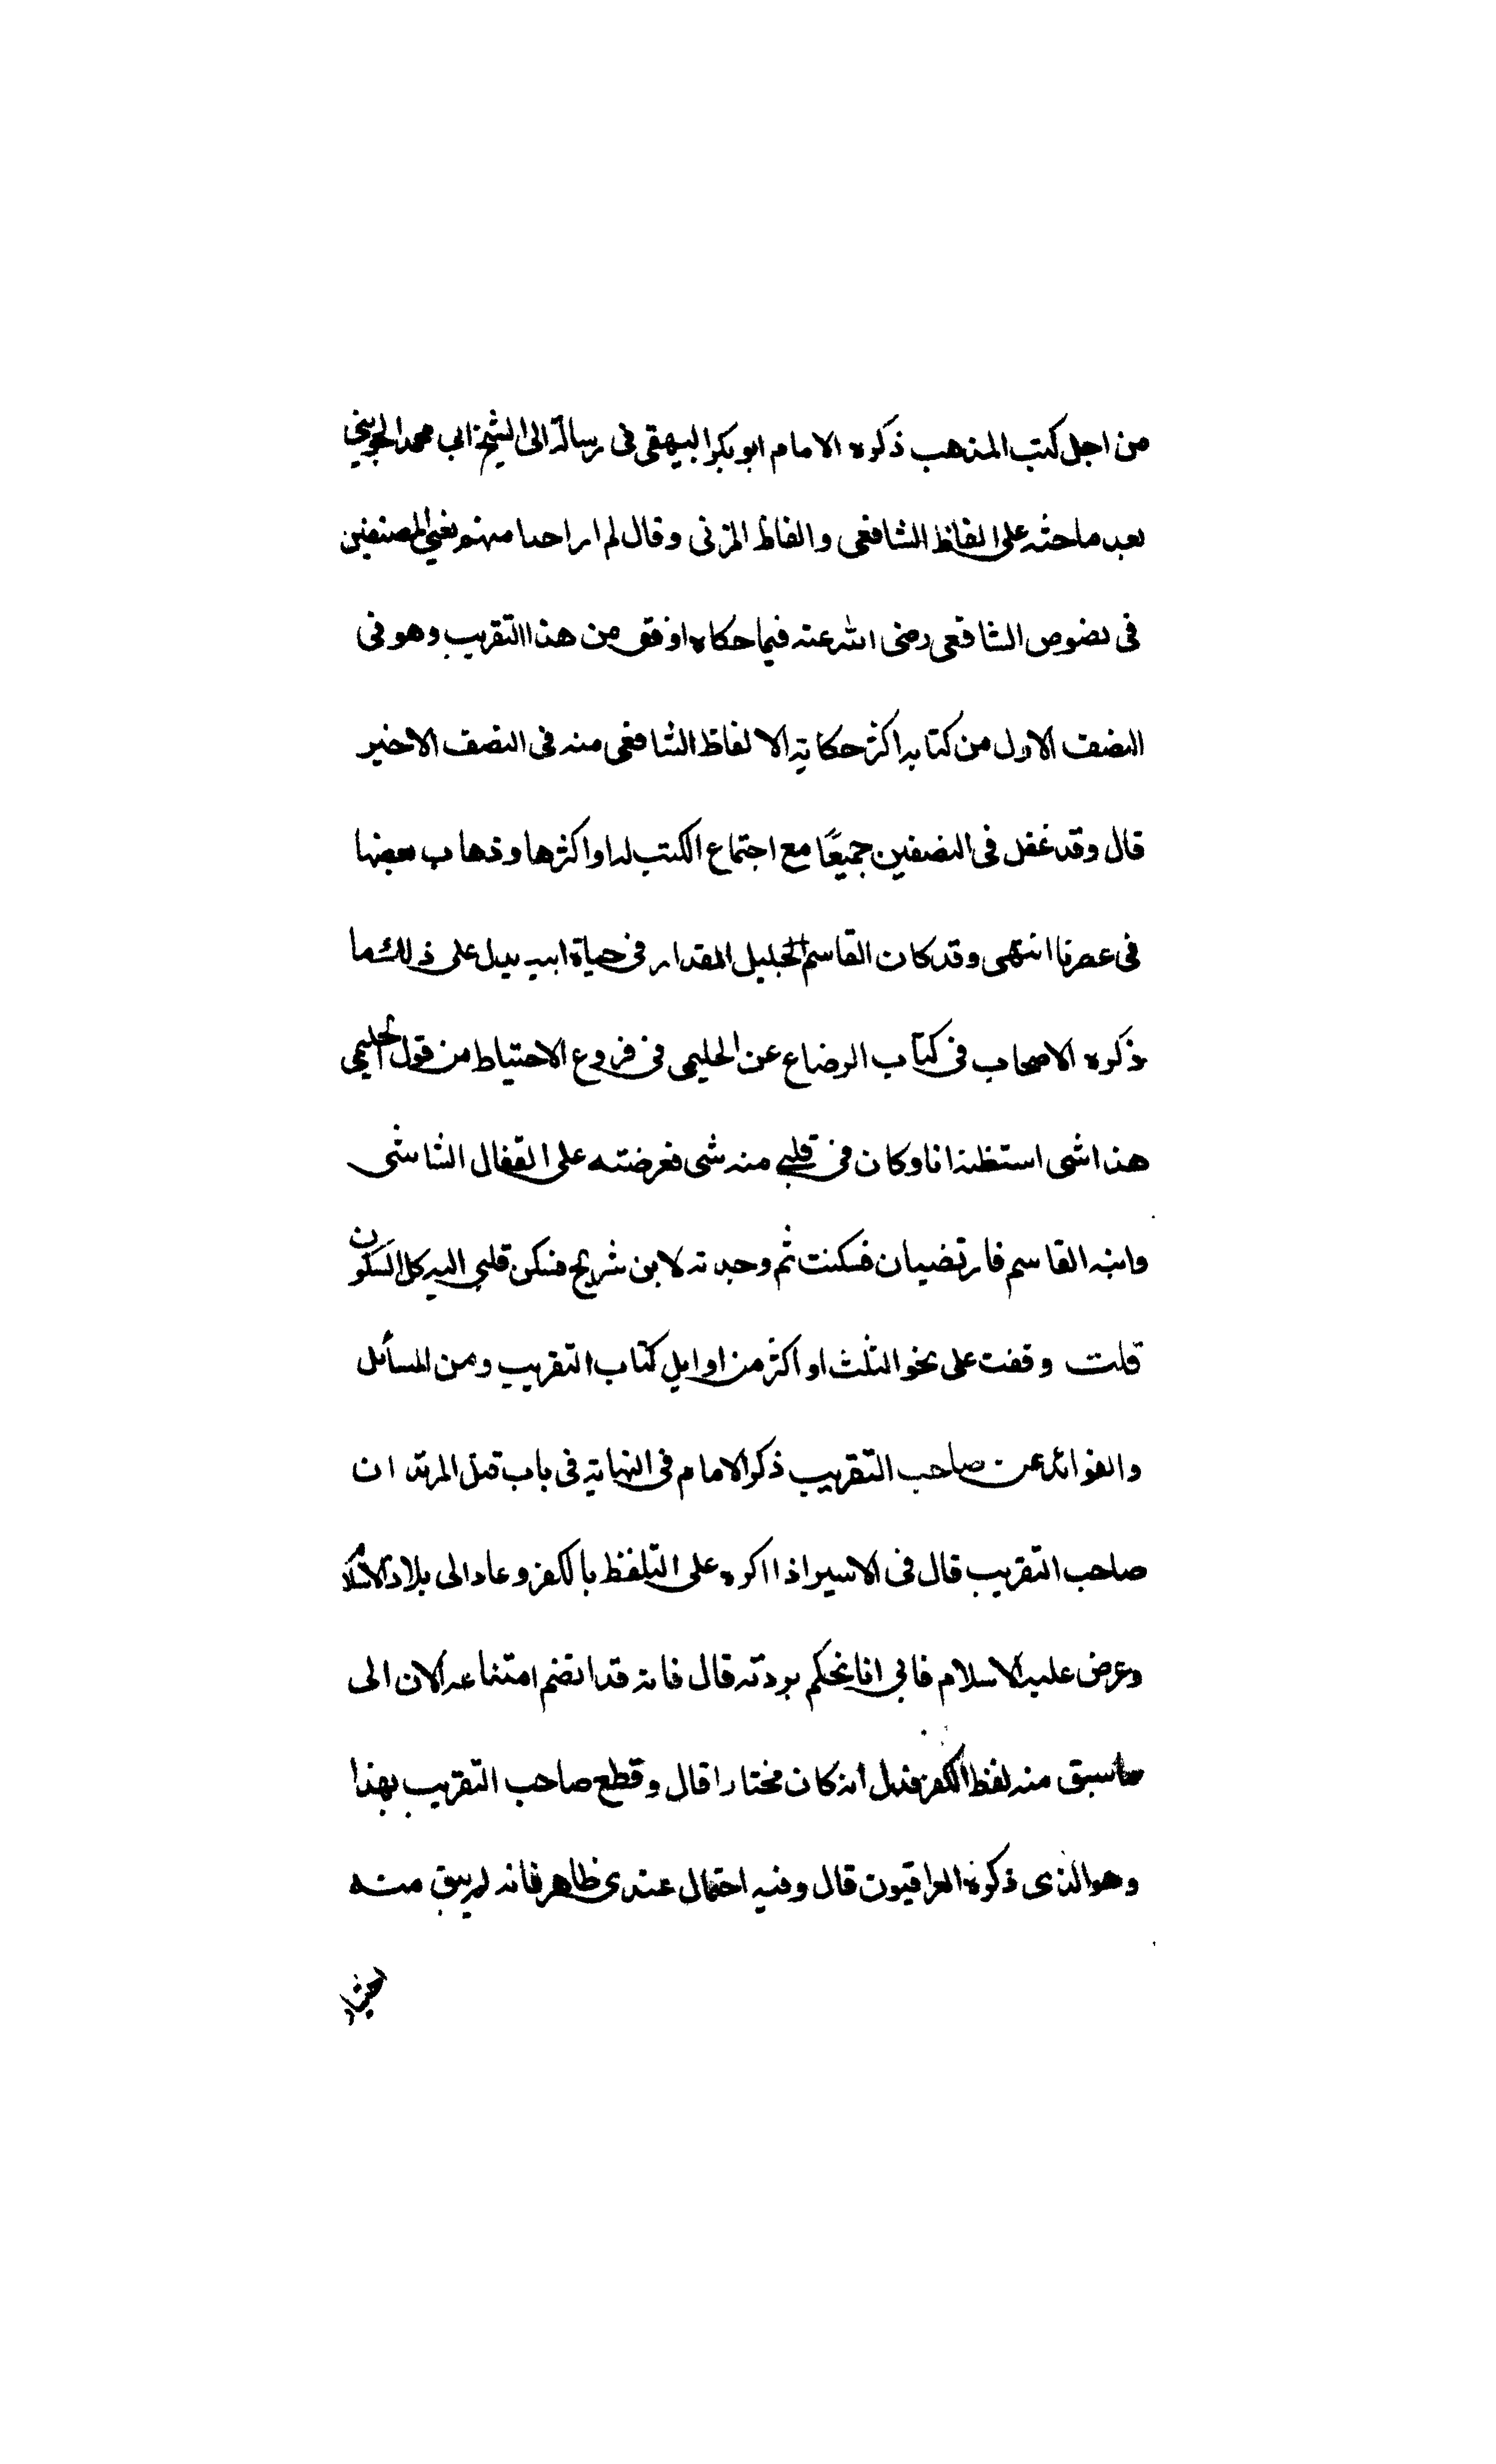 من اجل كتب المذهب ذكره الامام ابو بكر البيهقى فى رسالة الى الشيخ ابى محمد الجوينى
بعد ما حثه على الفاظ الشافعى والفاظ المزنى وقال لم ار احدا منهم يعنى المصنفين
فى نصوص الشافعى رضى الله عنه فيما حكاه اوفق من هذا التقريب وهو فى
النصف الاول من كتابه اكثر حكاية الالفاظ الشافعى منه فى النصف الاخير
قال وقد غفل فى النصفين جميعًا مع اجتماع الكتب له او اكثرها وذهاب بعضها
فى عصرنا انتهى وقد كان القاسم الجليل المقدار فى حياة ابيه يدل على ذلك ما
ذكره الاصحاب فى كتاب الرضاع عن الحليمى فى فروع الاحتياط من قول الحليمى
هذا شى استظهرته انا وكان فى قلبى منه شى فعرضته على القفال الشاشى
وابنه القاسم فارتضيان فسكنت ثم وجدته لابن شريح فسكن قلبى اليه كل السكون
قلت وقفت على نحو الثلث او اكثر من اوايل كتاب التقريب ومن المسائل
والفوائد عن صاحب التقريب ذكر الامام فى النهاية فى باب قتل المرتد ان
صاحب التقريب قال فى الاسير اذا اكره على التلفظ بالكفر وعاد الى بلاد الاسلام
وعرض عليه الاسلام فابى انا نحكم بردته قال فانه قد انضم امتناعه الان الى
ما سبق منه لفظ الكفر فدل انه كان مختارا قال وقطع صاحب التقريب بهذا
وهو الذى ذكره العراقيون قال وفيه احتمال عندى ظاهر فانه لم يسبق منه
اختيار